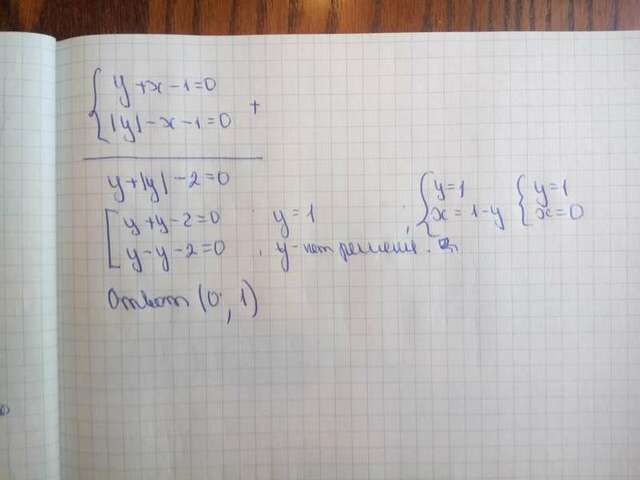 { y+x-1=0
|y|-x-1=0 +
y+|y|-2=0
[ y+y-2=0 ; y=1 ; { y=1 x=1-y { y=1 x=0
y-y-2=0 , y-нет решения.
Ответ (0, 1)